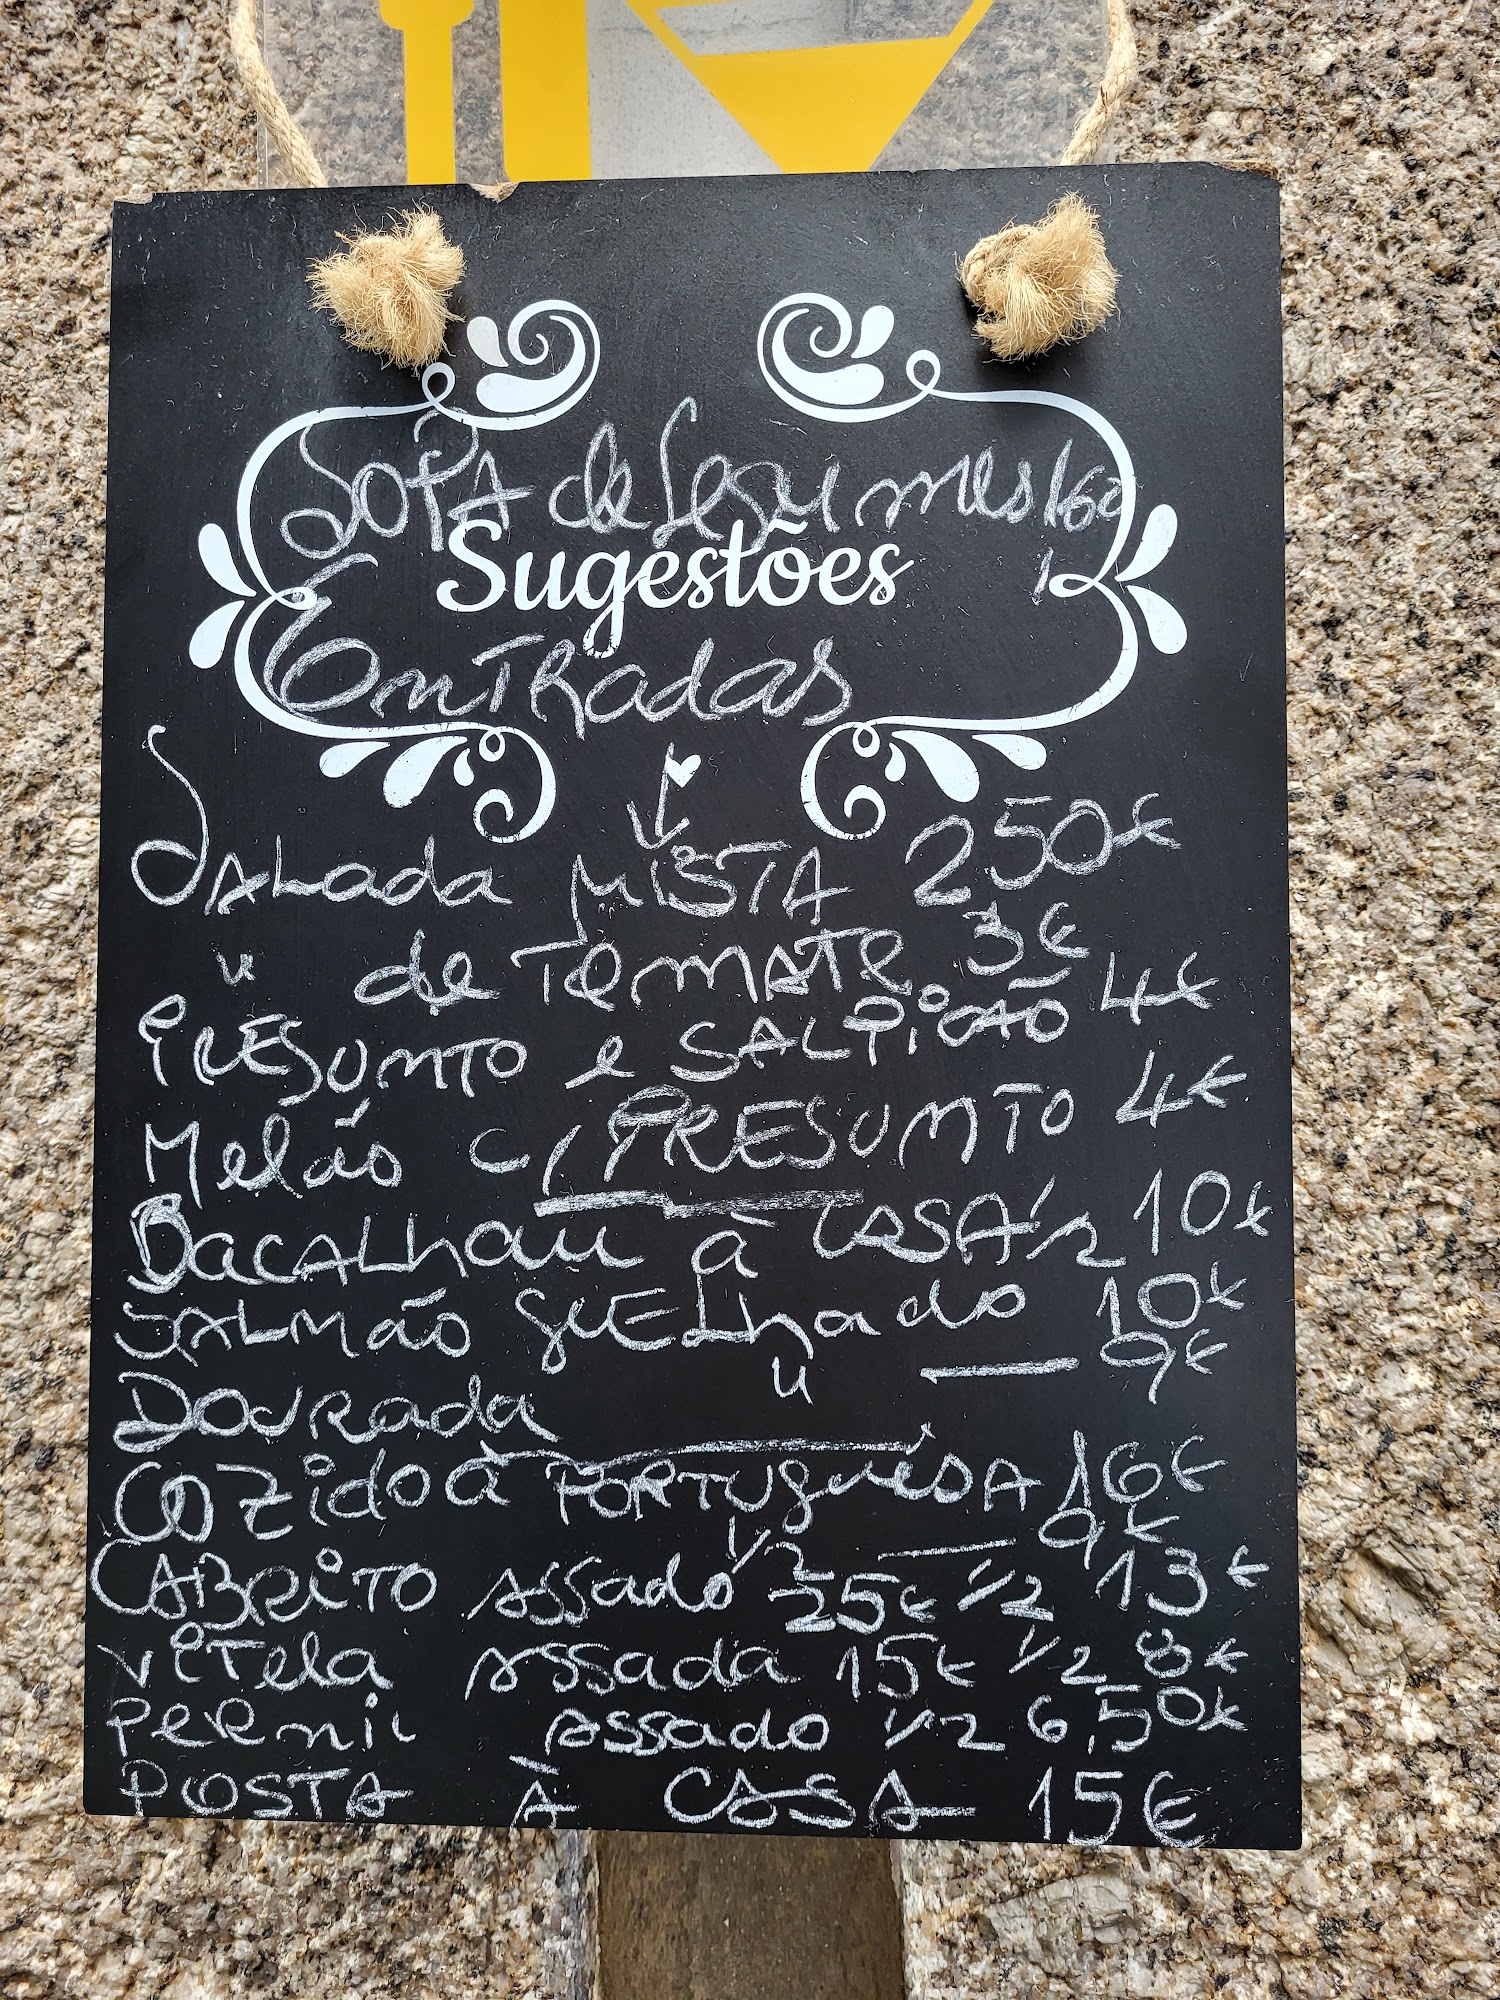 SOPA de Legumes 1,60
Sugestões
Entradas
SALada MISTA 250€
" de TOMATE 3€
PRESUNTO e SALPICÃO 4€
Melão c/ PRESUNTO 4€
BACALhau à CASA 1/2 10€
SALMão GRELhado 10€
DOURADA " — 9€
COZido à PORTUguesA 16€
1/2 — 9€
CABRITO ASSado 25€ 1/2 13€
VITela ASSada 15€ 1/2 8€
PERNIL ASSado 1/2 6,50€
POSTA À CASA 15€